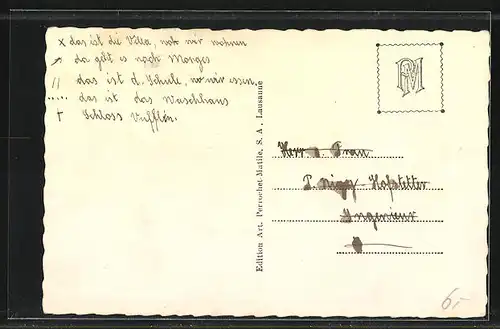 x das ist die Villa, wo wir wohnen
da geht es nach Morges
// das ist d. Schule, wo wir essen.
..... das ist das Waschhaus
† Schloss Vufflen.
Edition Art. Perrochet-Matile, S. A., Lausanne
PM
Herr Frau
Hofstetter
Ingenieur
6.-